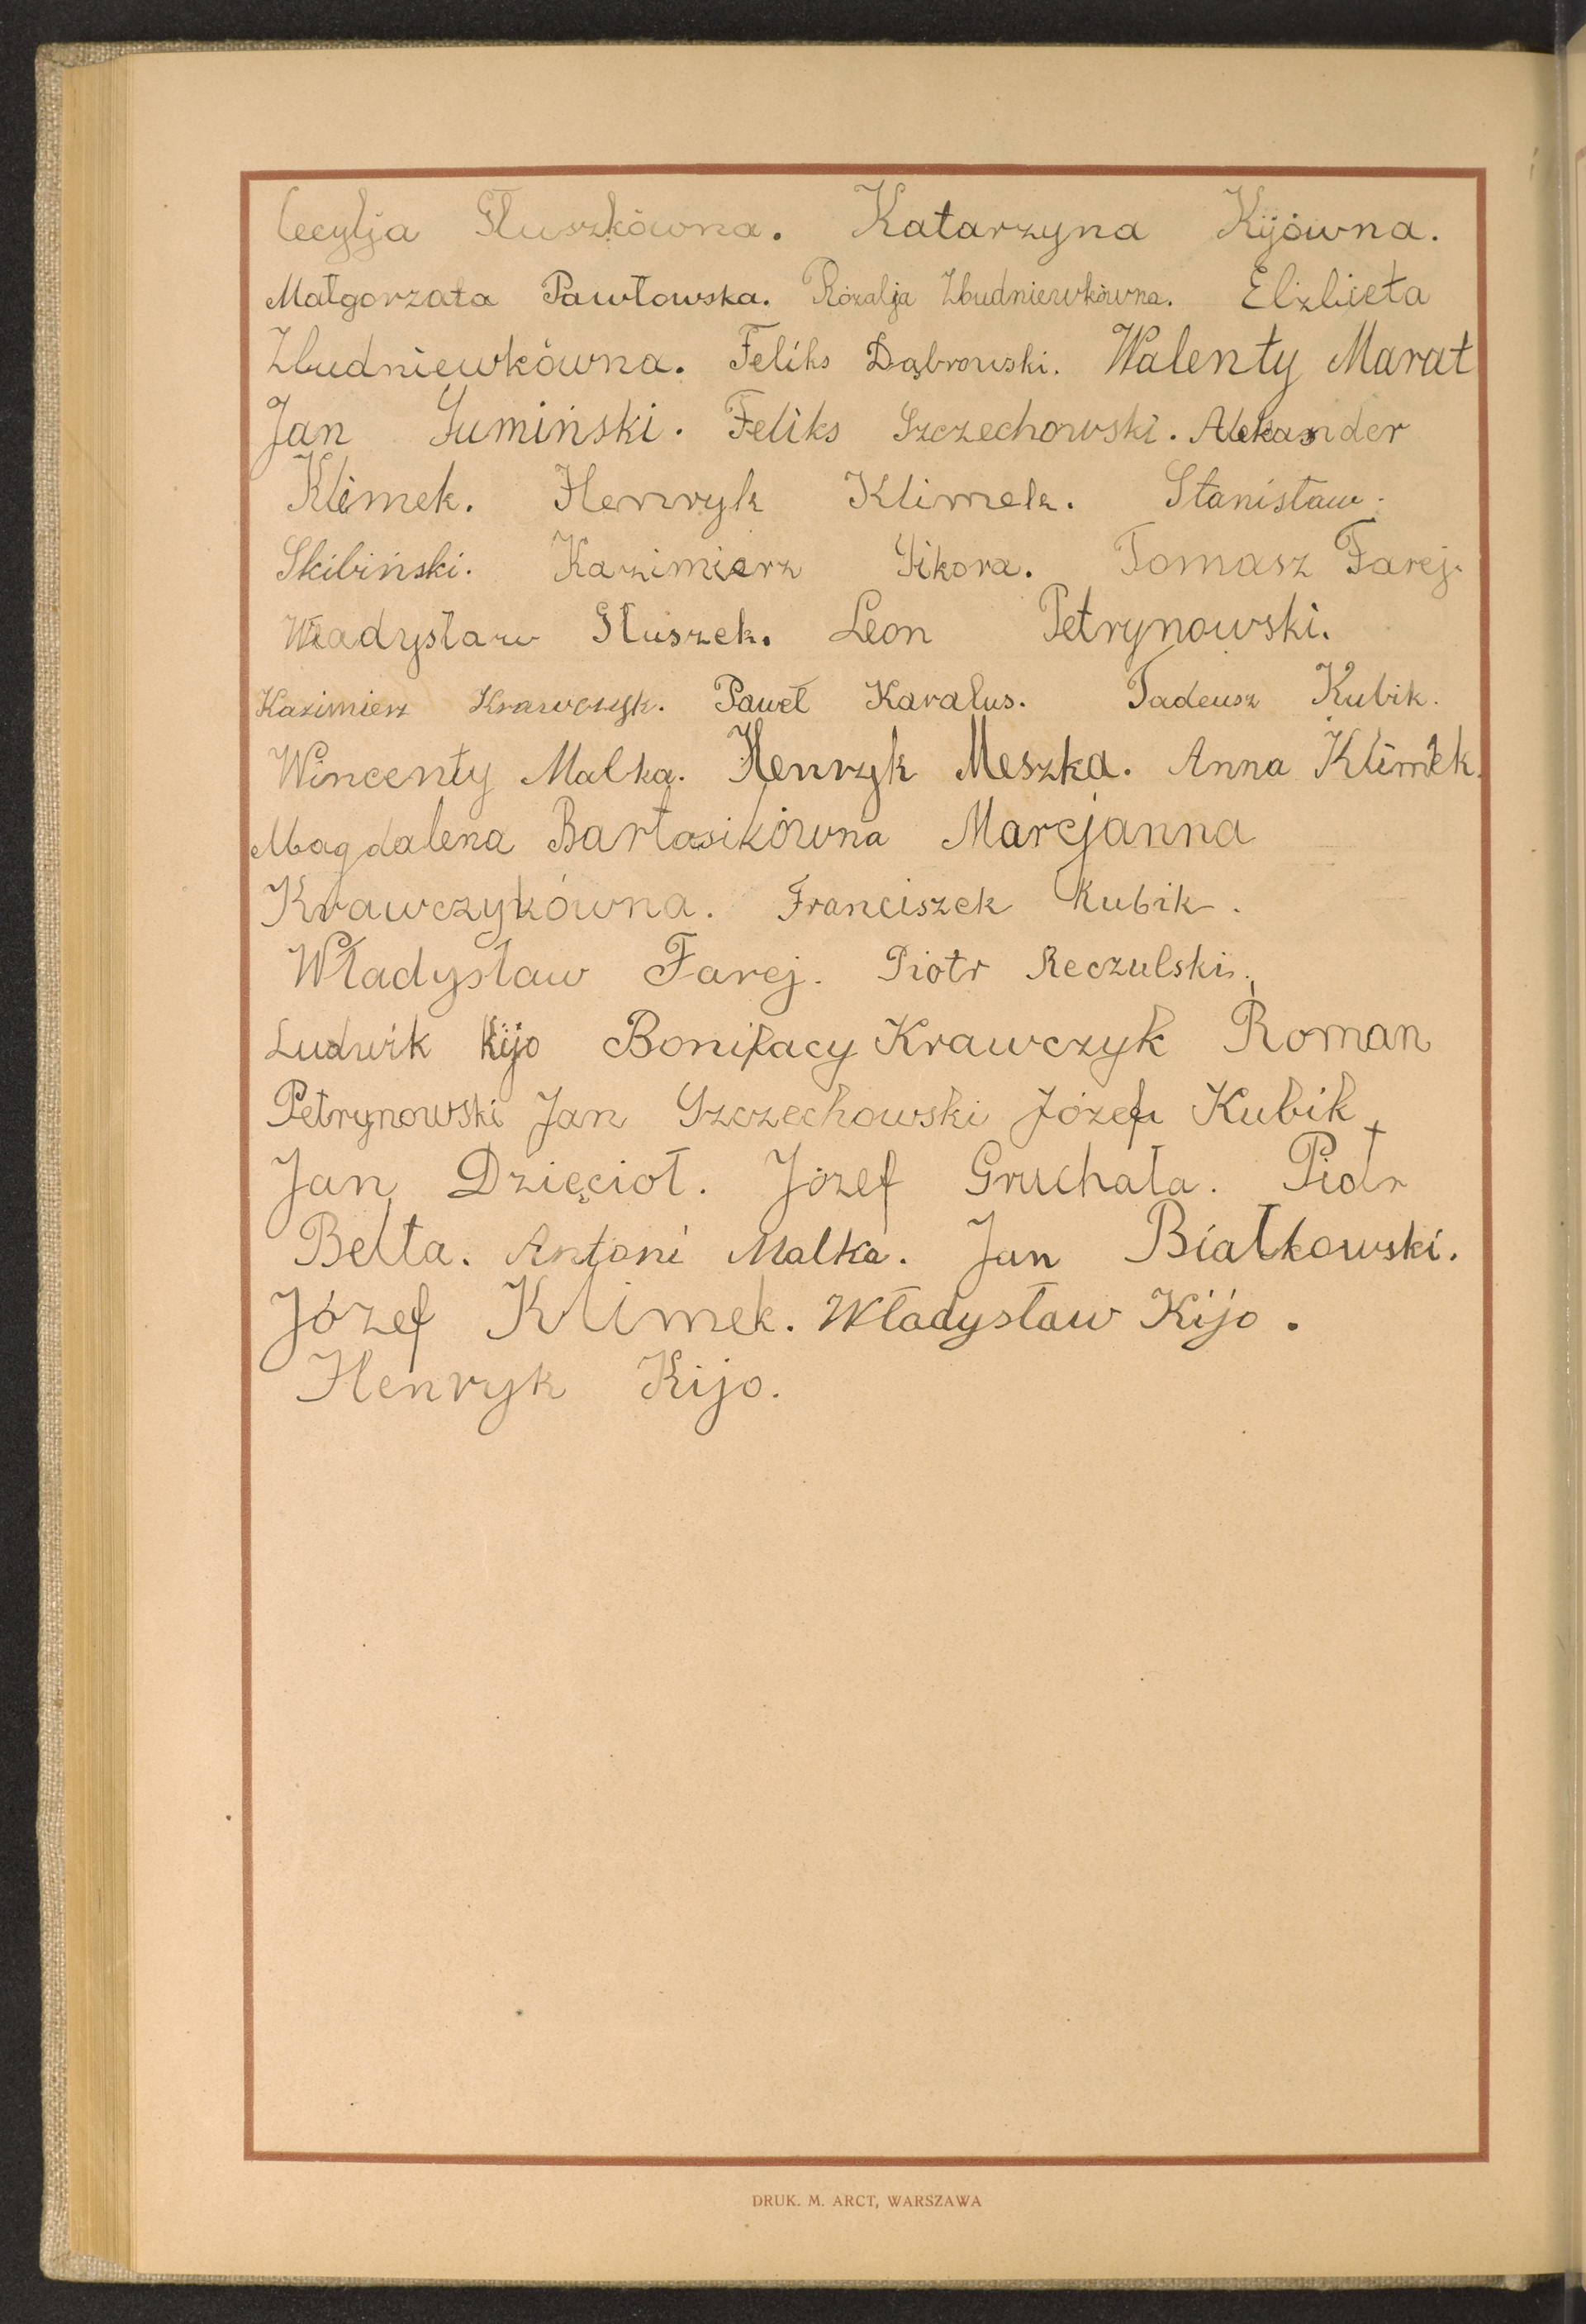 Cecylja Głuszkówna. Katarzyna Kijówna.
Małgorzata Pawłowska. Rózalja Zbudniewkówna. Elzbieta
Zbudniewkówna. Feliks Dąbrowski. Walenty Marat
Jan Sumiński. Feliks Szczechowski. Aleksander
Klimek. Henryk Klimek. Stanisław.
Skibiński. Kazimierz Sikora. Tomasz Farej.
Władysław Głuszek. Leon Petrynowski.
Kazimierz Krawczyk. Paweł Karalus. Tadeusz Kubik.
Wincenty Malka. Henryk Meszka. Anna Klimek.
Magdalena Bartosikówna Marcjanna
Krawczykówna. Franciszek Kubik.
Władysław Farej. Piotr Reczulski.
Ludwik Kijo Bonifacy Krawczyk Roman
Petrynowski Jan Szczechowski Józef Kubik
Jan Dzięcioł. Józef Gruchała. Piotr
Bełta. Antoni Malka. Jan Białkowski.
Józef Klimek. Władysław Kijo.
Henryk Kijo.
DRUK. M. ARCT, WARSZAWA